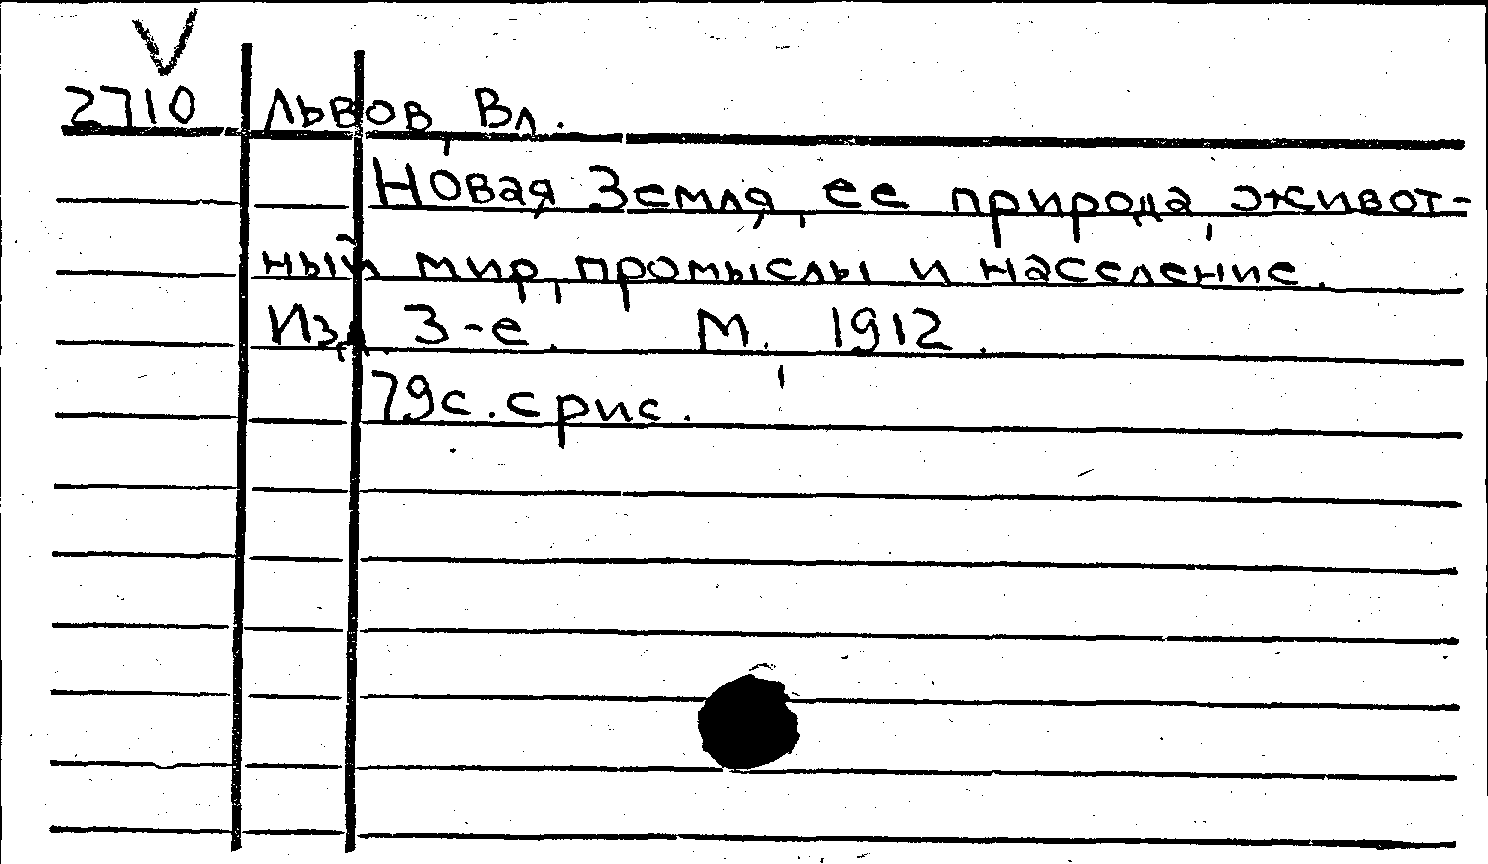 V
2710 Львов, Вл.
Новая Земля, ее природа, живот-
ный мир, промыслы и население.
Изд. 3-е. М. 1912.
79с. с рис.